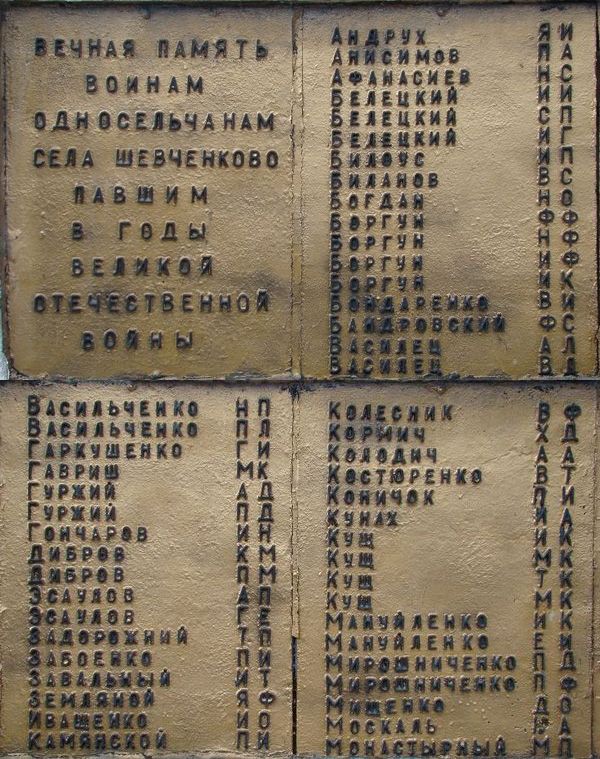 ВЕЧНАЯ ПАМЯТЬ
ВОИНАМ
ОДНОСЕЛЬЧАНАМ
СЕЛА ШЕВЧЕНКОВО
ПАВШИМ
В ГОДЫ
ВЕЛИКОЙ
ОТЕЧЕСТВЕННОЙ
ВОЙНЫ
АНДРУХ Я И
АНИСИМОВ П А
АФАНАСИЕВ Н С
БЕЛЕЦКИЙ И И
БЕЛЕЦКИЙ С П
БЕЛЕЦКИЙ И Г
БИЛОУС И П
БИЛАНОВ В С
БОГДАН Н О
БОРГУН Ф Ф
БОРГУН Н Ф
БОРГУН И Ф
БОРГУН И К
БОНДАРЕНКО В И
БАНДРОВСКИЙ Ф С
ВАСИЛЕЦ А Л
ВАСИЛЕЦ В Д
ВАСИЛЬЧЕНКО Н П
ВАСИЛЬЧЕНКО П Л
ГАРКУШЕНКО Г И
ГАВРИШ М К
ГУРЖИЙ А Д
ГУРЖИЙ П Д
ГОНЧАРОВ И Н
ДИБРОВ К М
ДИБРОВ П М
ЭСАУЛОВ А П
ЭСАУЛОВ Г Е
ЗАДОРОЖНИЙ Т П
ЗАБОЕНКО П И
ЗАВАЛЬНЫЙ И Т
ЗЕМЛЯНОЙ Я Ф
ИВАЩЕНКО И О
КАМЯНСКОЙ П И
КОЛЕСНИК В Ф
КОРМИЧ Х Д
КОЛОДИЧ А А
КОСТЮРЕНКО В Т
КОНИЧОК П И
КУНАХ И А
КУЩ И К
КУЩ М К
КУЩ Т К
КУЩ М К
МАНУЙЛЕНКО И К
МАНУЙЛЕНКО Е И
МИРОШНИЧЕНКО П Д
МИРОШНИЧЕНКО П Ф
МИЩЕНКО Д О
МОСКАЛЬ А
МОНАСТЫРНЫЙ М П